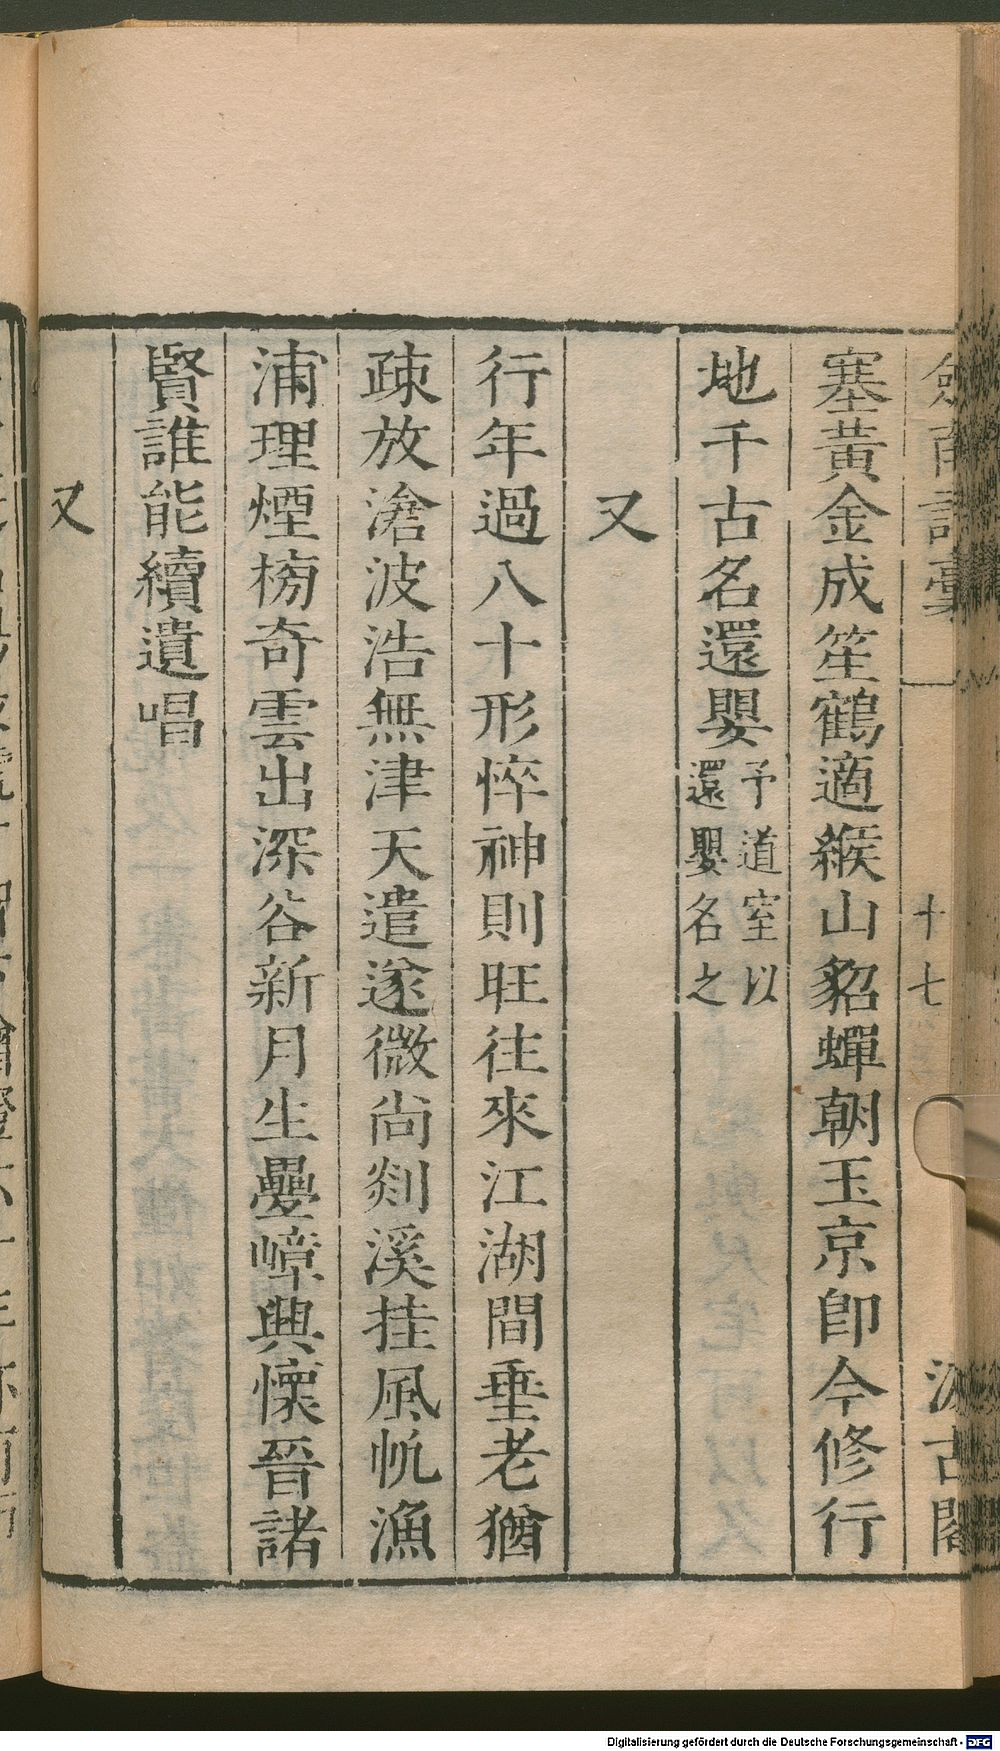 劍南詩稾
十七
汲古閣
塞黃金成笙鶴適緱山貂蟬朝玉京卽今修行
地千古名還嬰予道室以還嬰名之
又
行年過八十形悴神則旺往來江湖間垂老猶
疎放滄波浩無津天遣遂微尚剡溪挂風帆漁
浦理煙榜奇雲出深谷新月生疊嶂興懷晉諸
賢誰能續遺唱
又
Digitalisierung gefördert durch die Deutsche Forschungsgemeinschaft - DFG